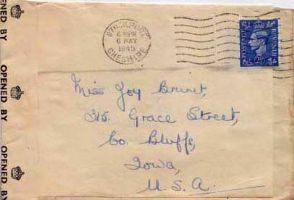 OPENED BY
OPENED BY
OPENED BY
STOCKPORT
6 MAY
1945
CHESHIRE
Miss Joy
315 Grace Street,
Co. Bluffs,
Iowa,
U.S.A.